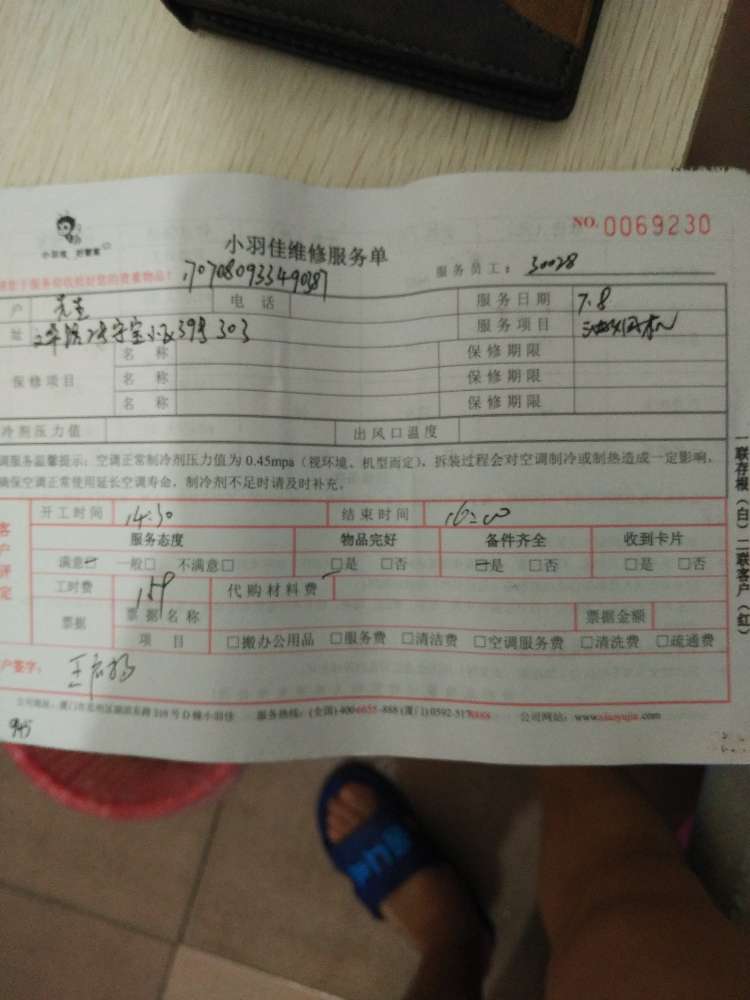 NO. 0069230
小羽佳 好管家
小羽佳维修服务单
服务员工: 30028
170708093349038
户 先生 电话 服务日期 7.8
址 39号 303 服务项目 油烟机
名称 保修期限
保修项目 名称 保修期限
名称 保修期限
冷剂压力值 出风口温度
调服务温馨提示:空调正常制冷剂压力值为 0.45mpa(视环境、机型而定),拆装过程会对空调制冷或制热造成一定影响,
确保空调正常使用延长空调寿命,制冷剂不足时请及时补充。
开工时间 14:30 结束时间 16:00
服务态度 物品完好 备件齐全 收到卡片
满意□ 一般□ 不满意□ □是 □否 □是 □否 □是 □否
工时费 159 代购材料费
票据 票据名称 票据金额
项目 □搬办公用品 □服务费 □清洁费 □空调服务费 □清洗费 □疏通费
客户评定
户签字:
公司地址:厦门市思明区湖滨东路319号D幢小羽佳 服务热线:(全国)400-6655-888 (厦门)0592-5178888 公司网站:www.xiaoyujia.com
一联存根(白)二联客户(红)